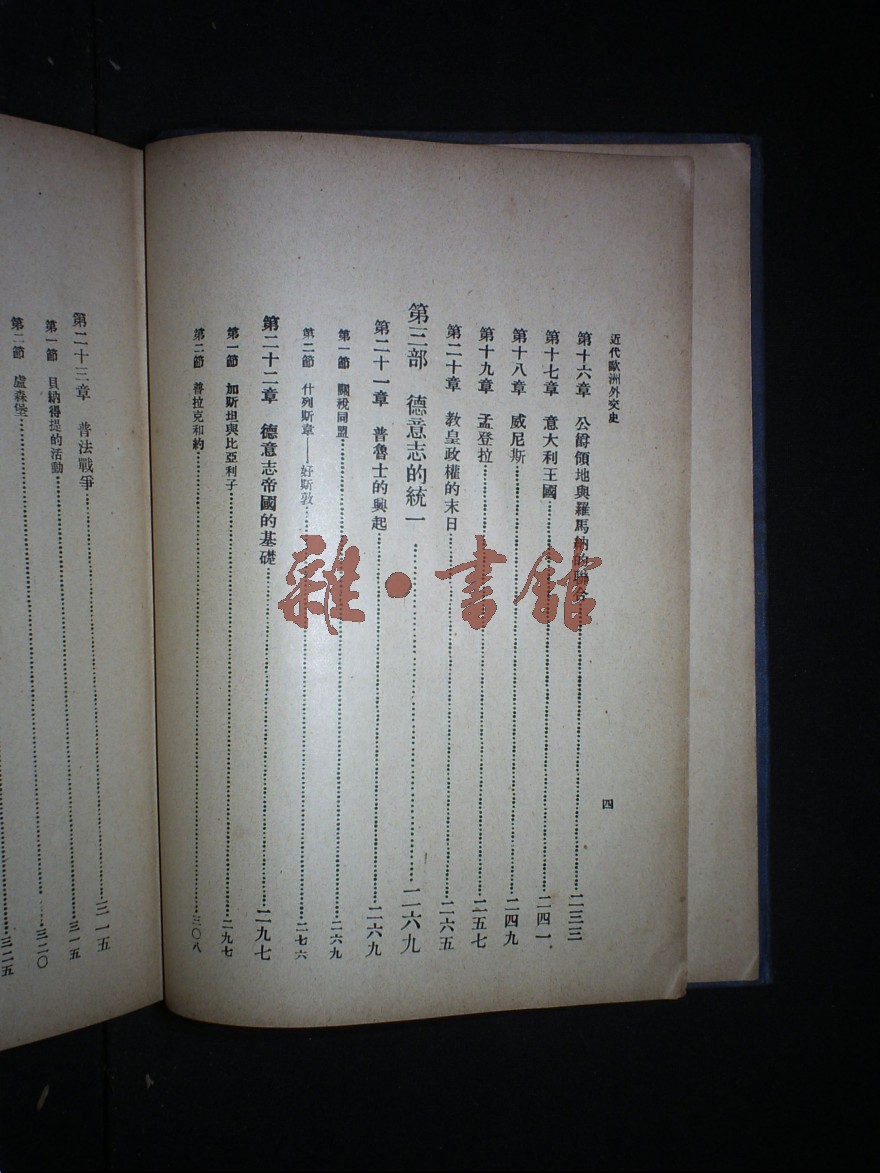 近代歐洲外交史
四
第十六章 公爵領地與羅馬納的聯合 二三三
第十七章 意大利王國 二四一
第十八章 威尼斯 二四九
第十九章 孟登拉 二五七
第二十章 教皇政權的末日 二六五
第三部 德意志的統一 二六九
第二十一章 普魯士的興起 二六九
第一節 關稅同盟 二六九
第二節 什列斯韋——好斯敦 二七六
第二十二章 德意志帝國的基礎 二九七
第一節 加斯坦與比亞利子 二九七
第二節 普拉克和約 三〇八
第二十三章 普法戰爭 三一五
第一節 貝納得提的活動 三一五
第二節 盧森堡 三二〇
三二五
雜·書館